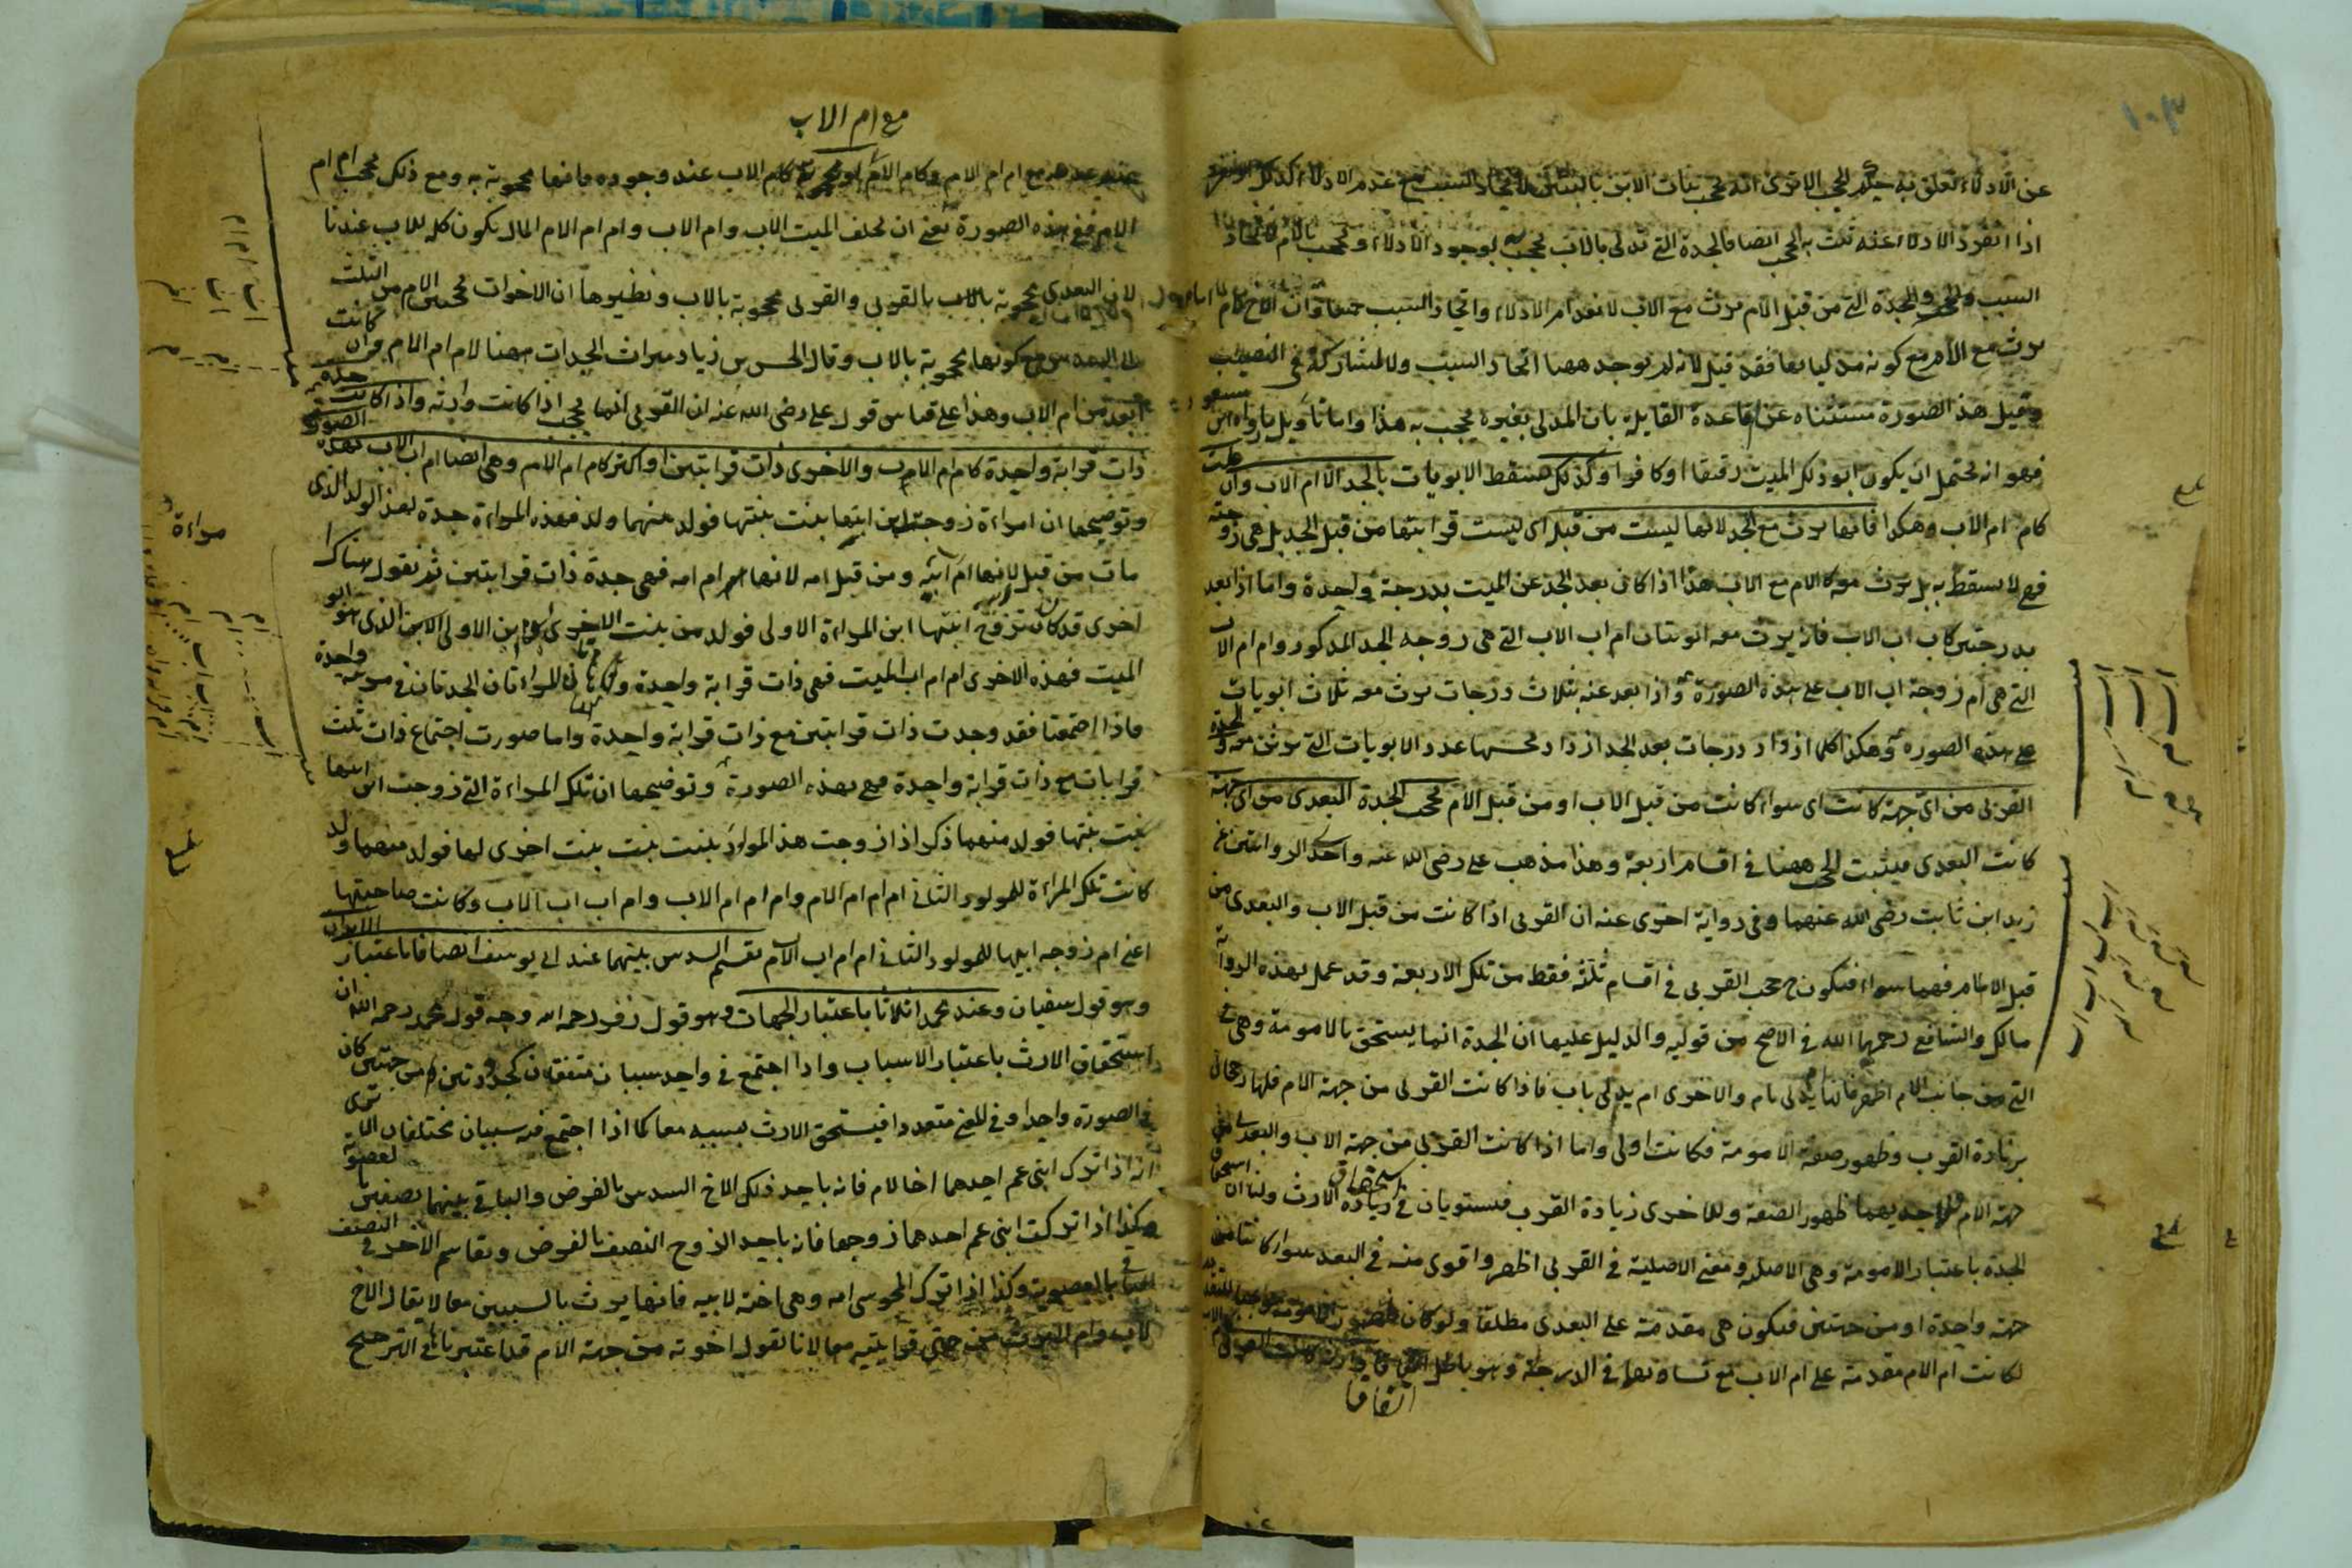 ١٠٣
عن الادلاء تعلق به حكم الحجب الا ترى انه تحجب بنات الابن بالبنتين لاتحاد السبب مع عدم الادلاء كذلك
اذا انفرد الادلاء عنه تثبت به الحجب ايضا فالجدة التي تدلى بالاب تحجب به لوجود الادلاء وتحجب بالام لاتحاد
السبب والجدة التي من قبل الام ترث مع الاب لانعدام الادلاء واتحاد السبب جميعا وان الاخ لام
يرث مع الام مع كونه مدليا بها فقد قيل لانه لم يوجد ههنا اتحاد السبب ولا المشاركة في النصيب
وقيل هذا الصورة مستثناه عن قاعدة القايلة بان المدلى بغيره يحجب به هذا واما تاويل ما رواه ابن مسعود
فهو انه يحتمل ان يكون ابو ذلك الميت رقيقا او كافرا وكذلك تسقط الابويات بالجد الا ام الاب وان علت
كام ام الاب وهكذا فانها ترث مع الجد لانها ليست من قبل اى ليست قرابتها من قبل الجد بل هى زوجته
فهى لا تسقط به بل ترث معه كالام مع الاب هذا اذا كان بعد الجد عن الميت بدرجة واحدة واما اذا بعد
بدرجتين كاب اب الاب فانه يرث معه ابويتان ام اب الاب التي هى زوجه الجد المذكور وام ام الاب
التي هى ام زوجة اب الاب على هذه الصورة واذا بعد عنه بثلاث درجات يرث معه ثلاث ابويات
على هذه الصورة وهكذا كلما ازداد درجات بعد الجد ازداد بحسبها عدد الابويات التي يرثن معه والجدة
القربى من اى جهة كانت اى سواء كانت من قبل الاب او من قبل الام تحجب الجدة البعدى من اى جهة
كانت البعدى فيثبت الحجب ههنا في اقسام اربعة وهذا مذهب على رضى الله عنه واحدى الروايتين عن
زيد ابن ثابت رضى الله عنهما وفى رواية اخرى عنه ان القربى اذا كانت من قبل الاب والبعدى من
قبل الام فهما سواء فيكون ح حجب القربى في اقسام ثلثة فقط من تلك الاربعة وقد عمل بهذه الرواية
مالك والشافعى رحمهما الله في الاصح من قوليه والدليل عليها ان الجدة انما يستحق بالامومة وهى في
التي من جانب الام اظهر فانها تدلى بام والاخرى ام يدلى باب فاذا كانت القربى من جهة الام فلها رجحان
بزيادة القرب وظهور صفة الامومة فكانت اولى واما اذا كانت القربى من جهة الاب والبعدى من
جهة الام فلاحديهما ظهور الصفة وللاخرى زيادة القرب فيستويان في استحقاق الارث ولنا ان استحقاق
الجدة باعتبار الامومة وهى الاصلة ومعنى الاصلية في القربى اظهر واقوى منه في البعد سواء كانتا من
جهة واحدة او من جهتين فيكون هى مقدمة على البعدى مطلقا ولو كان
لكانت ام الام مقدمة على ام الاب مع تساويهما في الدرجة وهو باطل
اتفاقا
مع ام الاب
مع ام ام الام وكام الاب عند وجوده فانها محجوبة به ومع ذلك تحجب ام ام
الام ففى هذه الصورة يعنى ان يخلف الميت الاب وام الاب وام ام الام المال يكون كله للاب عندنا
لان البعدى محجوبة بالقربى والقربى محجوبة بالاب ونظيرها ان الاخوات تحجبن الام من الثلث
الى السدس مع كونها محجوبة بالاب وقال الحسن بن زياد ميراث الجدات ههنا لام ام الام وان كانت
ابعد من ام الاب وهذا على قياس قول على رضى الله عنه ان القربى انما تحجب اذا كانت وارثه واذا كانت جدة
ذات قرابة واحدة كام ام الاب والاخرى ذات قرابتين او اكثر كام ام الام وهى ايضا ام اب الاب بهذه الصورة
وتوضيحها ان امراءة زوجت ابن ابنها بنت بنتها فولد بينهما ولد فهذه المراءة جدة لهذا الولد الذى
مات من قبل ابيه لانها ام اب ابيه ومن قبل امه لانها ام ام امه فهى جدة ذات قرابتين ثم نقول هناك
اخرى قد كان تزوج ابنتها ابن المراءة الاولى فولد من بنت الاخرى وابن الاولى الابن الذى هو ابو
الميت فهذه الاخرى ام ام اب الميت فهى ذات قرابة واحدة وهاتان المراتان الجدتان في مرتبة واحدة
فاذا اجتمعتا فقد وجدت ذات قرابتين مع ذات قرابة واحدة واما صورت اجتماع ذات ثلث
قرابات مع ذات قرابة واحدة فهى بهذه الصورة وتوضيحها ان تلك المراءة التي زوجت ابن ابنها
بنت بنتها فولد منهما ذكر اذا زوجت هذا المولود بنت بنت بنت اخرى لها فولد منهما ولد
كانت تلك المراءة للمولود الثانى ام ام ام الام وام ام ام الاب وام اب اب الاب وكانت صاحبتها
اعنى ام زوجه ابنها للمولود الثانى ام ام اب الاب يقسم السدس بينهما عند ابى يوسف انصافا باعتبار الابدان
وهو قول سفيان وعند محمد اثلاثا باعتبار الجهات وهو قول زفر رحمه الله وجه قول محمد رحمه الله ان
استحقاق الارث باعتبار الاسباب واذا اجتمع في واحد سببان متفقان كجدودتين من جهتين كان
في الصورة واحدا وفى المعنى متعددا فيستحق الارث بسببيه معا كما اذا اجتمع فيه سببان مختلفان الا ترى
انه اذا ترك ابنى عم احدهما اخا لام فانه ياخذ ذلك الاخ السدس بالفرض والباقى بينهما نصفين بالعصوبة
وكذا اذا تركت ابنى عم احدهما زوجها فانه ياخذ الزوج النصف بالفرض ويقاسم الاخر في النصف
الباقى بالعصوبة وكذا اذا ترك المجوسى امه وهى اخته لابيه فانها يرث بالسببين معا لا يقال الاخ
لاب وام لا يرث من جهتى قرابتيه معا لانا نقول اخوته من جهة الام قد اعتبرناها في الترجيح